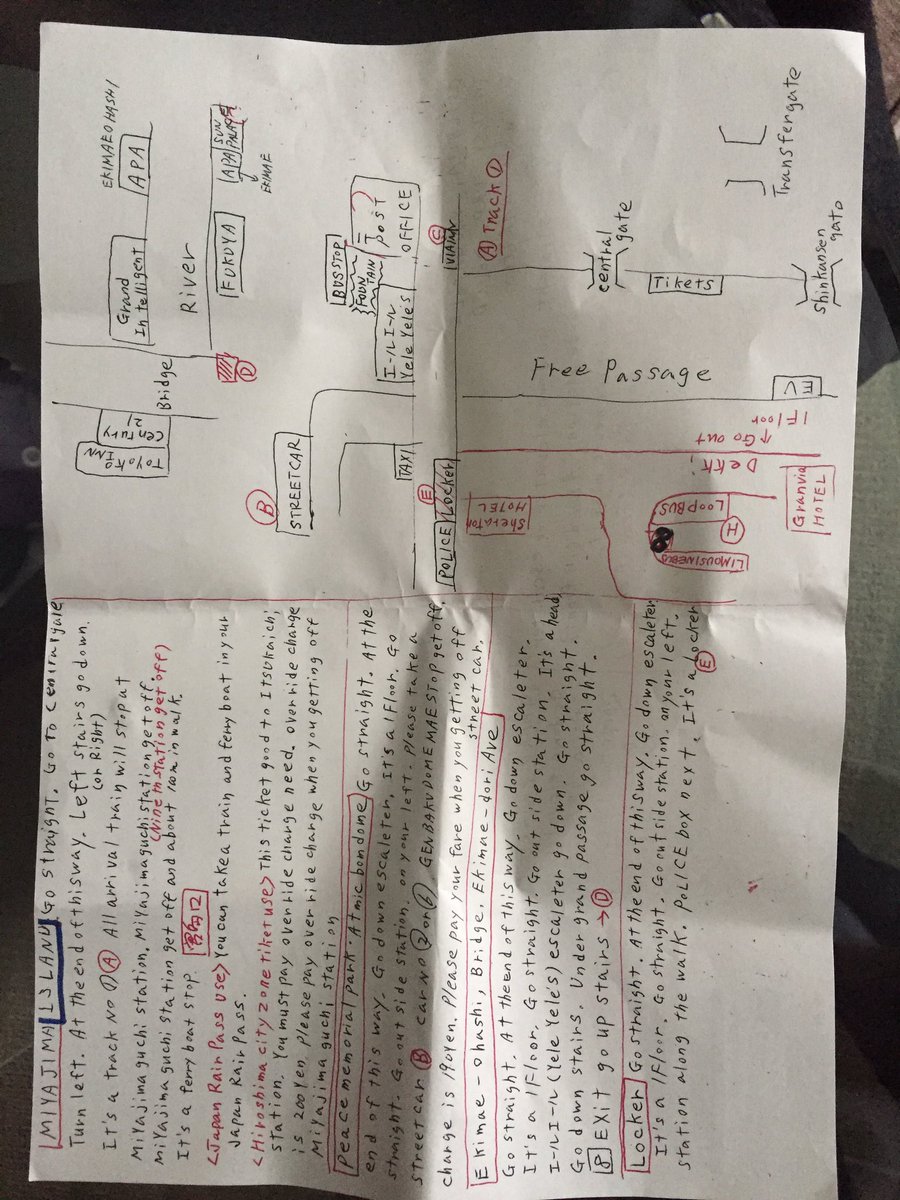 MIYAJIMA ISLAND Go straight. Go to centralgate
Turn left. At the end of this way. Left stairs go down.
(or Right)
It's a track NO ① Ⓐ All arrival train will stop at
Miyajimaguchi station, Miyajimaguchi station get off.
(Nine th station get off)
Miyajimaguchi station get off and about 10min walk.
It's a ferry boat stop.
<Japan Rail Pass use> You can take a train and ferry boat in your
Japan Rail Pass.
<Hiroshima city zone tiket use> This ticket good to Itsukaichi
station. You must pay over ride change need. over ride change
is 200 yen. Please pay over ride change when you getting off
Miyajimaguchi station
Peace memorial park. Atmic bom dome Go straight. At the
end of this way. Go down escaleter. It's a 1 Floor. Go
straight. Go out side station, on your left. Please take a
streetcar Ⓑ car NO ② or ⑥, GENBAKU DOME MAE STOP get off.
change is 190yen. Please pay your fare when you getting off
street car.
Ekimae-ohashi, Bridge, Ekimae-dori Ave
Go straight. At the end of this way. Go down escaleter.
It's a 1 Floor. Go straight. Go out side station. It's ahead,
エールエール (Yele Yele's) escaleter go down. Go straight.
Go down stairs. Under grand passage, go straight.
8 Exit go up stairs → Ⓓ
Locker Go straight. At the end of this way. Go down escaleter
It's a 1 Floor. Go straight. Go out side station. on your left.
station along the walk. POLICE box next. It's a Locker
Ⓔ
EKIMAEOHASHI
APA
Grand Intelligent
River
Bridge
Century 21
Toyoko INN
SUN PALACE
APA
EKIMAE
FUKUYA
Ⓓ
Ⓑ
STREETCAR
BUSSTOP
FOUN TAIN
〒 Post OFFICE
エールエール
Yele Yele's
TAXI
POLICE
Locker
Ⓔ
Ⓒ
VIAINN
Ⓐ Track ①
central gate
Tikets
Transfergate
Shinkansen gate
Free Passage
EV
1 Floor
↑ Go out
Dekk
Sheraton HOTEL
LOOPBUS
Ⓗ
LIMOUSINEBUS
Granvia HOTEL